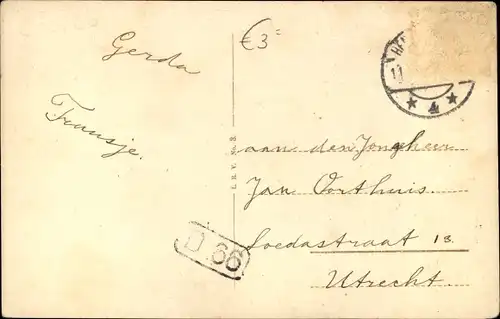 Gerda
Fransje.
€3=
11
4
I. R. V. No. 3.
aan den Jongeheer
Jan Oorthuis
Soedastraat 13.
Utrecht
D 66